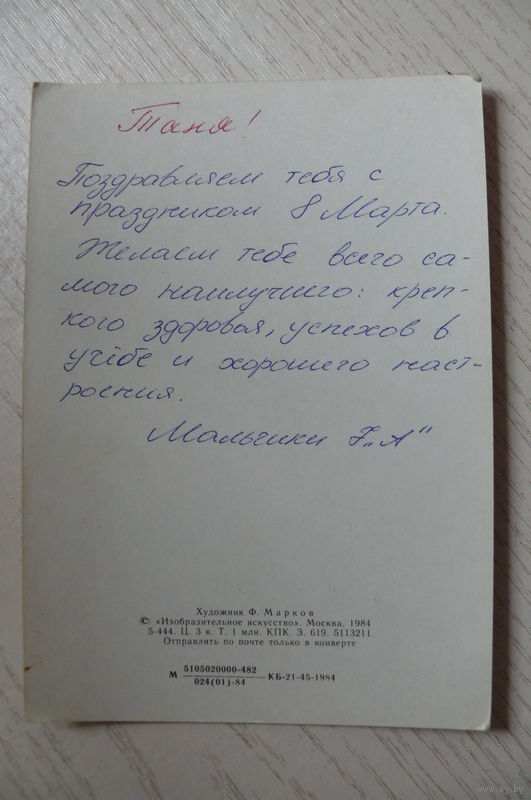 Таня!
Поздравляем тебя с
праздником 8 Марта.
Желаем тебе всего са-
мого наилучшего: креп-
кого здоровья, успехов в
учёбе и хорошего наст-
роения.
Мальчики 7 „А"
Художник Ф. Марков
© «Изобразительное искусство». Москва. 1984
5-444. Ц. 3 к. Т. 1 млн. КПК. З. 619. 5113211
Отправлять по почте только в конверте
М 5105020000-482 КБ-21-45-1984
024(01)-84
www.ay.by